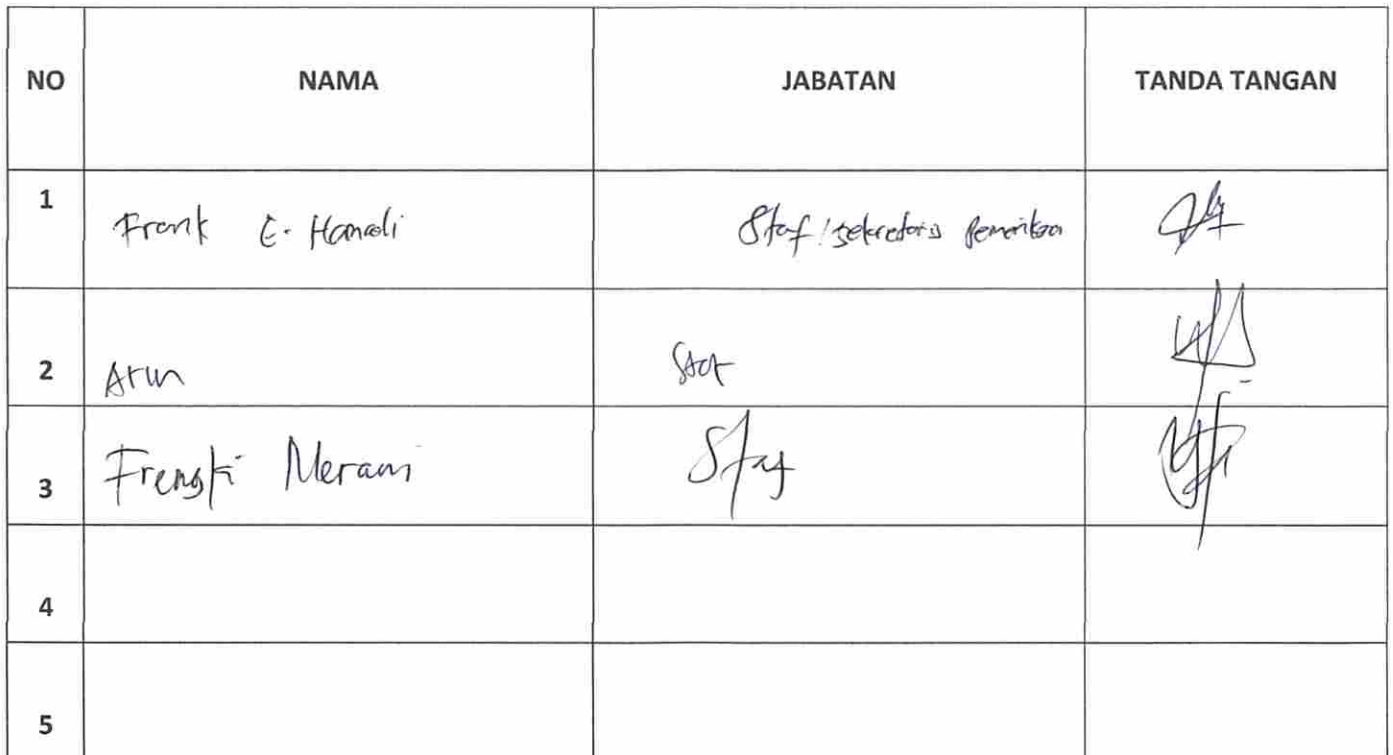 NO NAMA JABATAN TANDA TANGAN
1 Frank E. Hamadi Staf/sekretaris
2 Arun Staf
3 Frengki Merani Staf
4
5